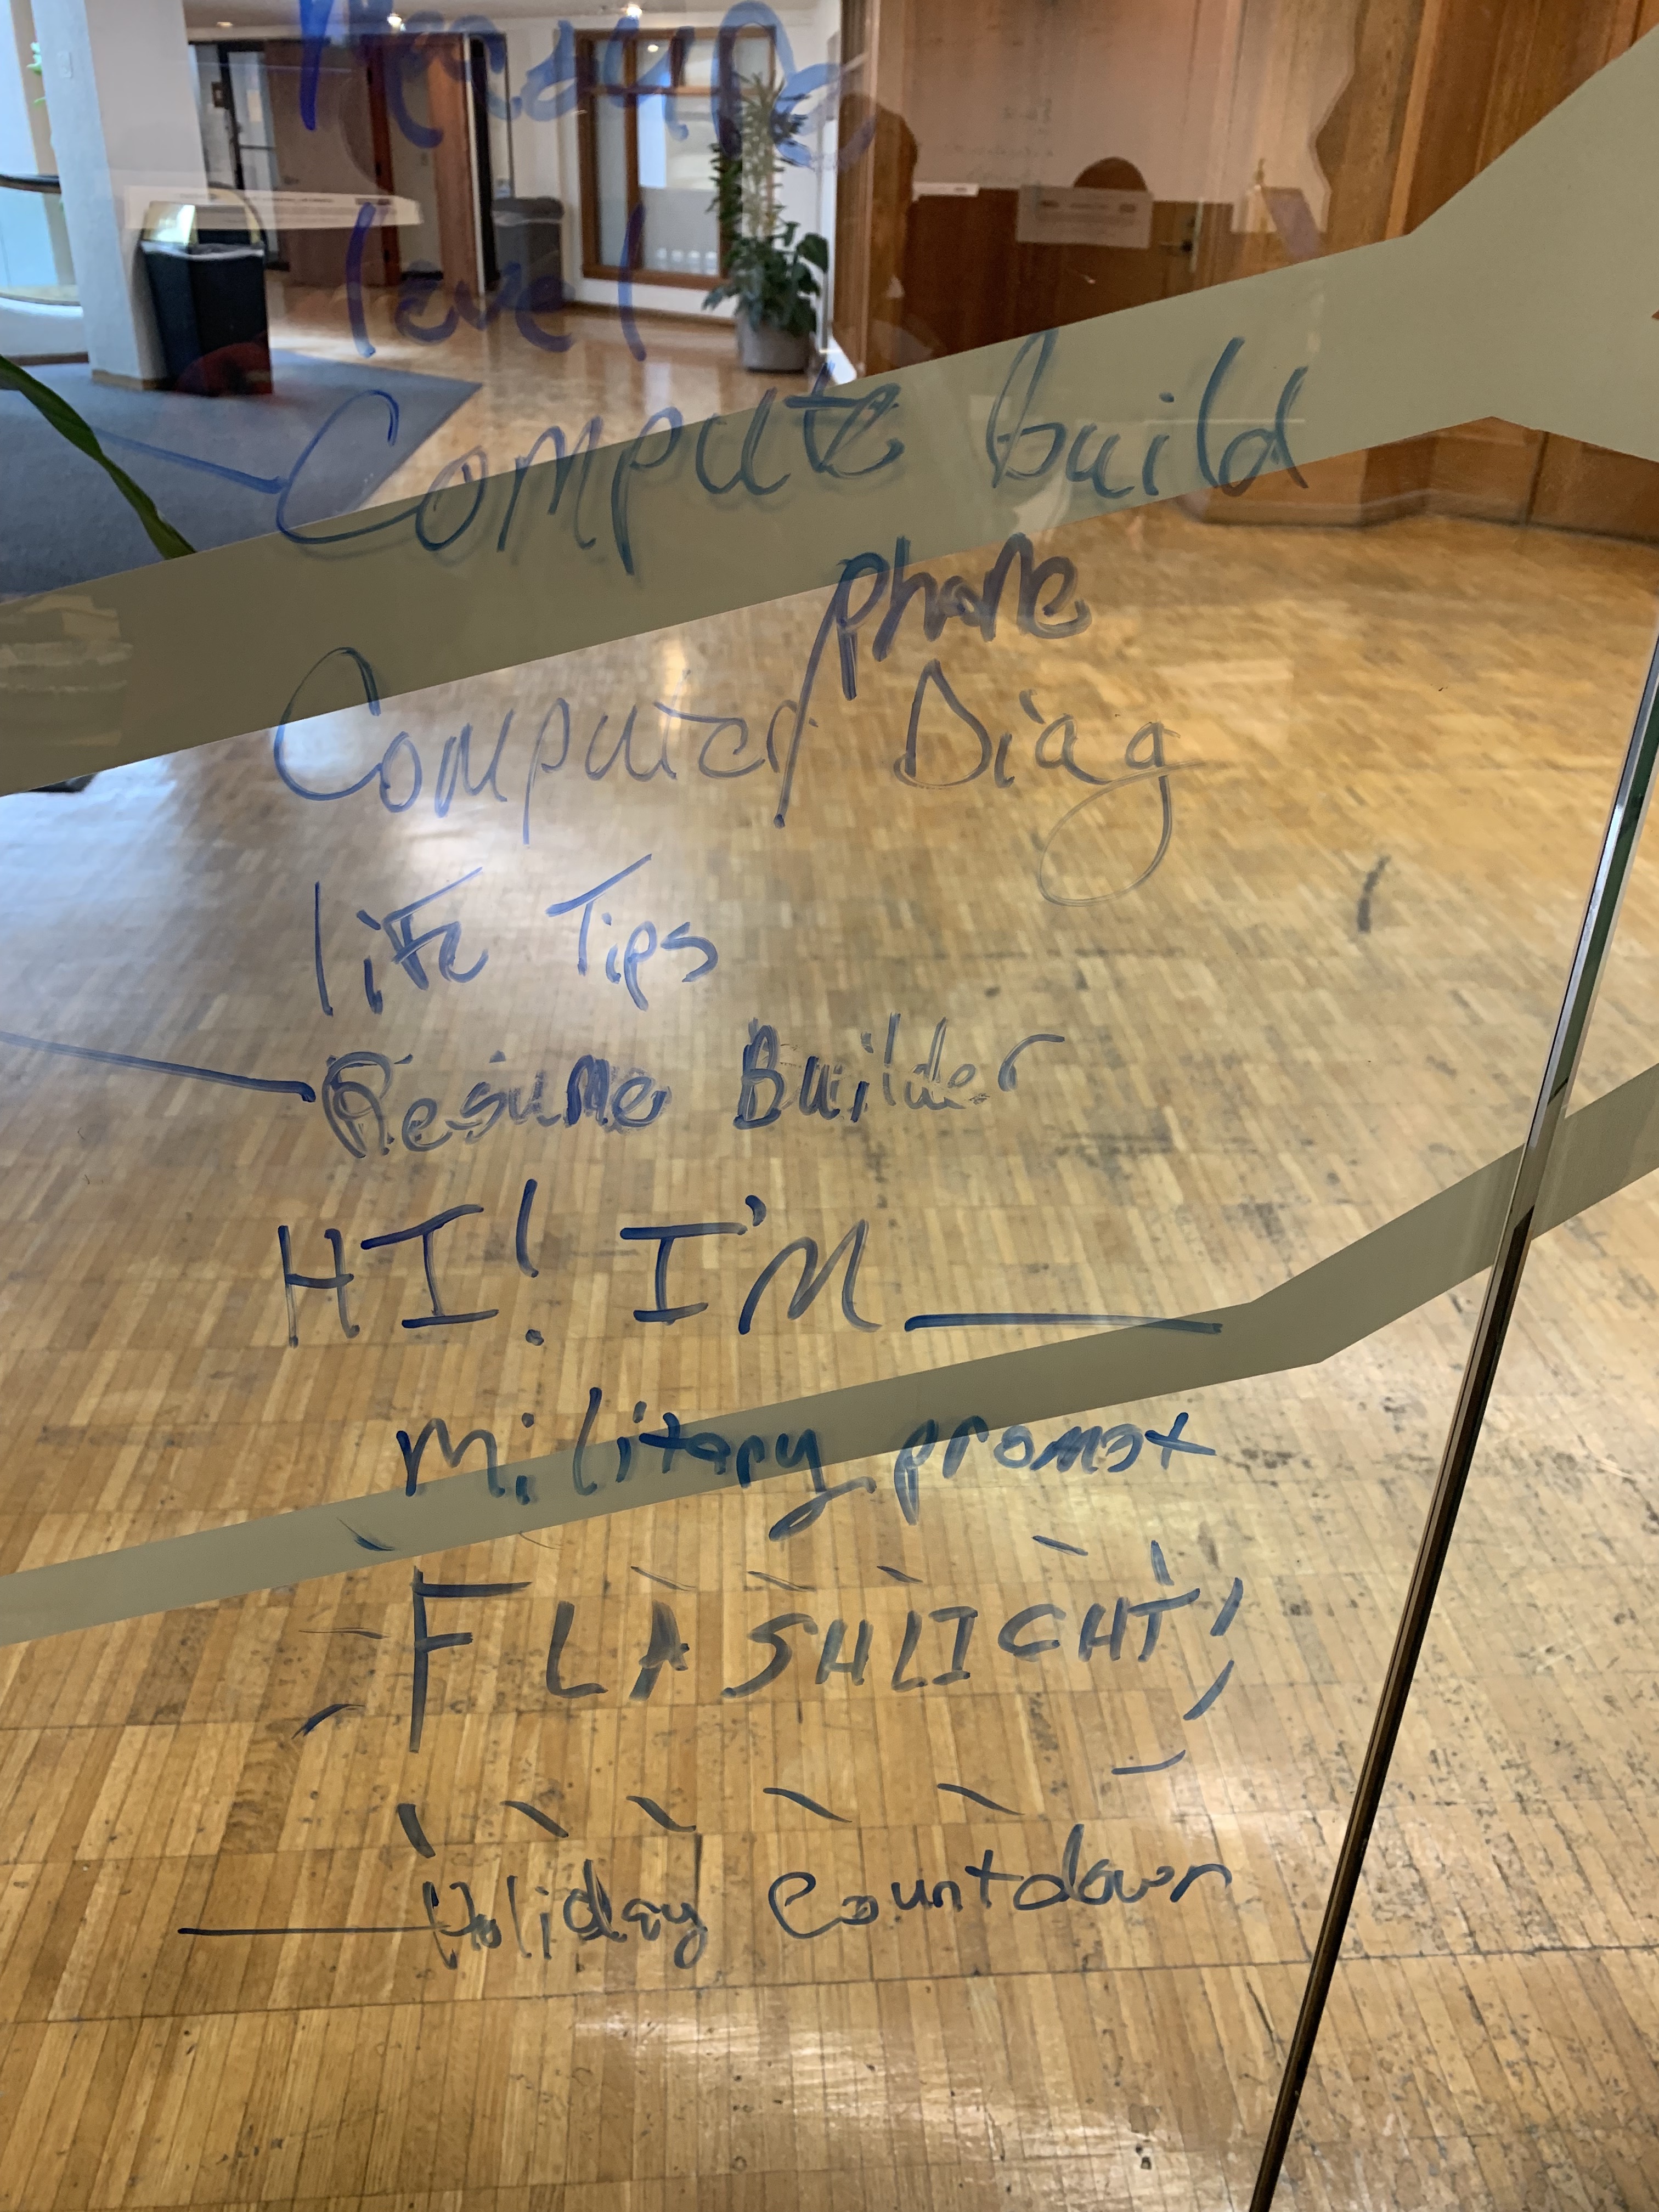 level
Compute build
phone
Computer/ Diag
life Tips
Resume Builder
HI! I'M ____
military prompt
FLASHLIGHT
Holiday Countdown